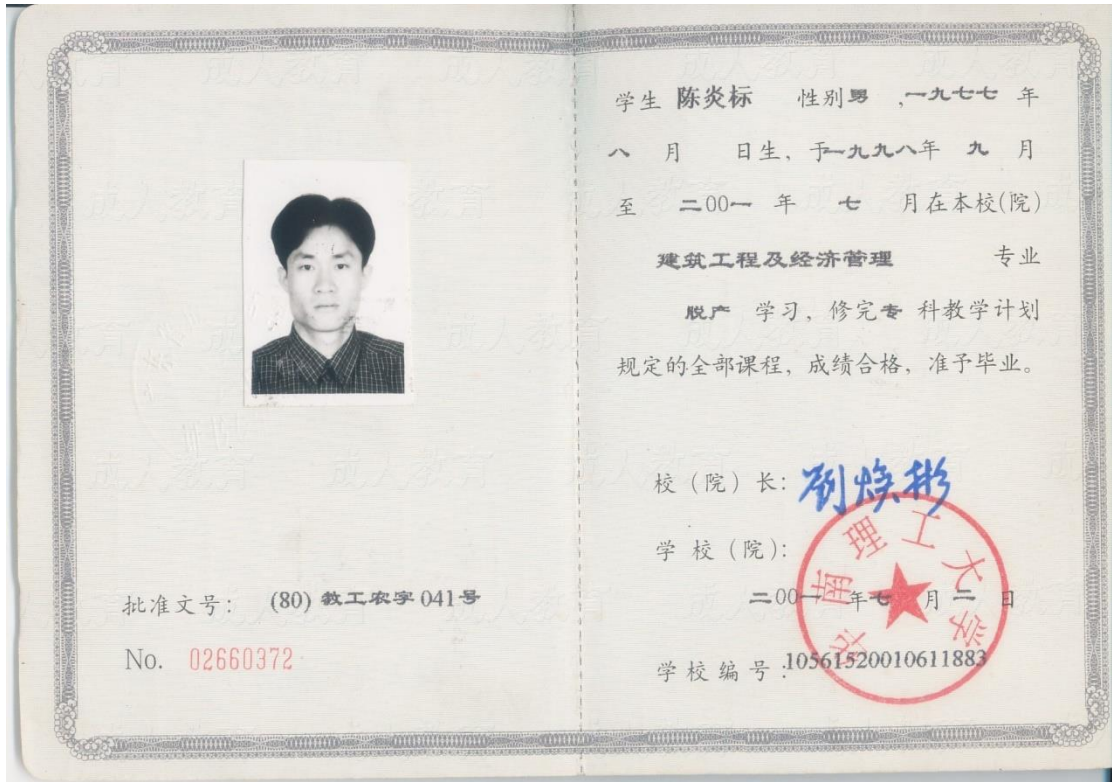 批准文号： (80) 教工农字 041号
No. 02660372
学生 陈炎标 性别 男 ，一九七七 年
八 月 日生，于一九九八年 九 月
至 二00一 年 七 月在本校(院)
建筑工程及经济管理 专业
脱产 学习，修完专 科教学计划
规定的全部课程，成绩合格，准予毕业。
校（院）长：刘焕彬
学 校（院）：
华南理工大学
二00一 年七 月 二 日
学校编号：10561520010611883
成人教育